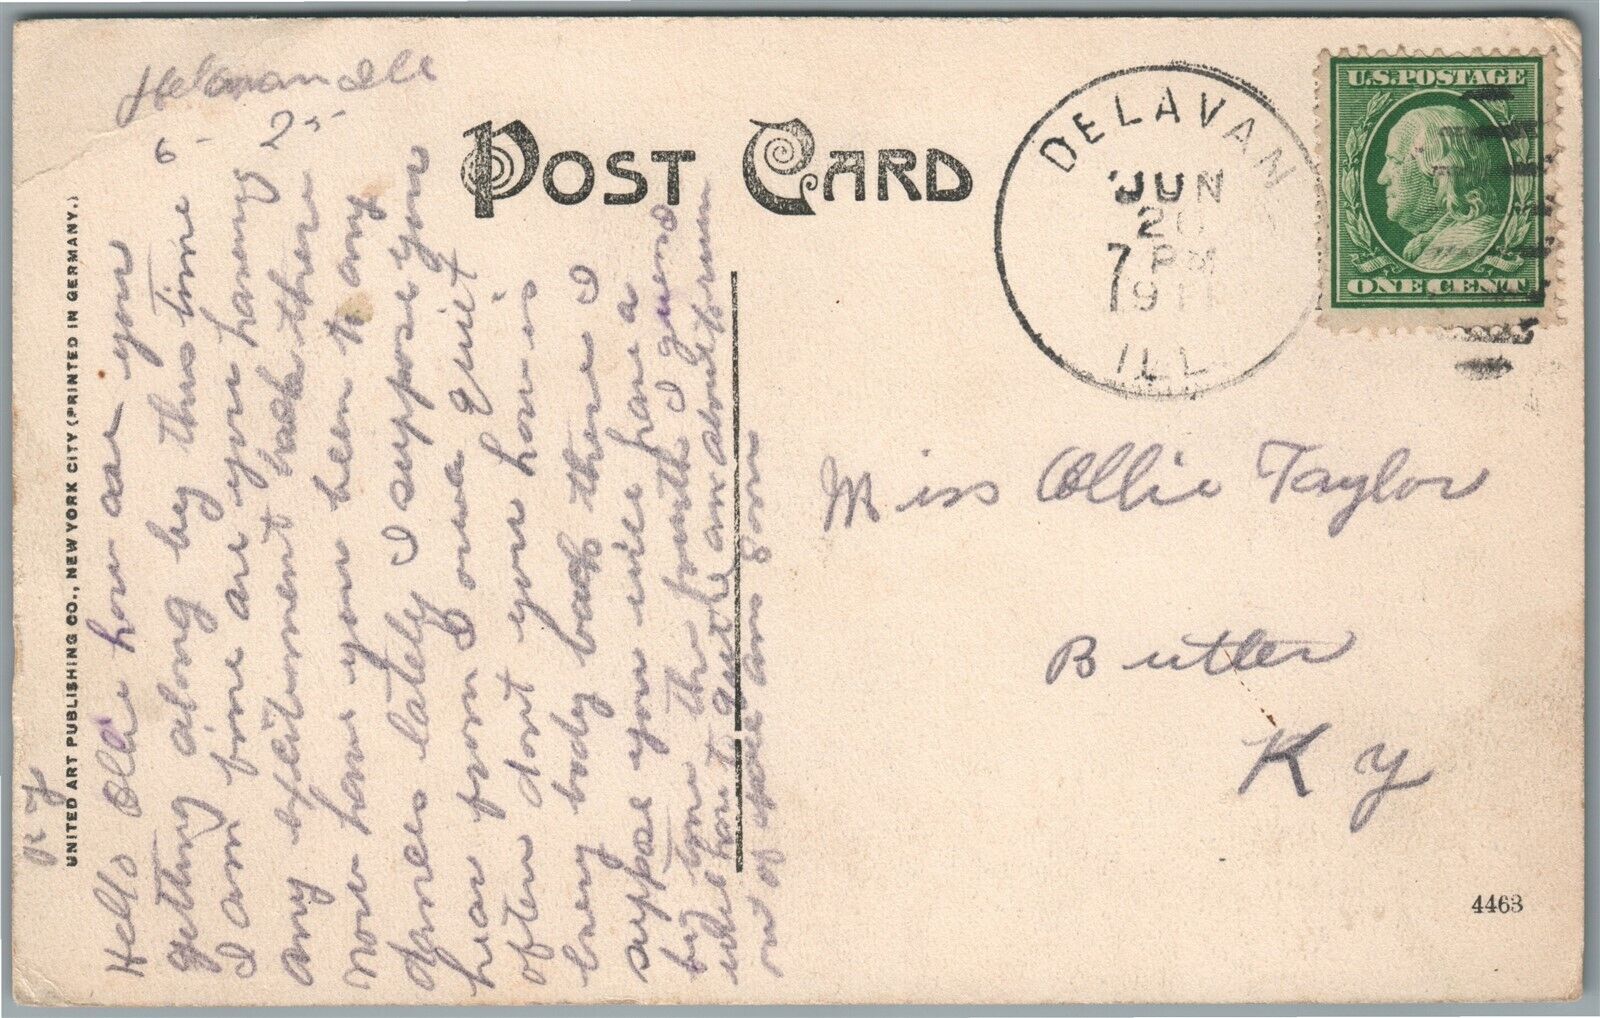 Delavan Ill
6- 25-
Hello Ollie how are you
getting along by this time
I am fine are you having
any exfcitument back there
now have you been to any
dances lately I suppose you
hear from I owa Quiet
often dont you how is
every body back there I
suppose you will have a
big time the fourth I guess
will have quit
am soon
K y
UNITED ART PUBLISHING CO., NEW YORK CITY (PRINTED IN GERMANY.)
POST CARD
DELAVAN
JUN
7 PM
1911
ILL.
U.S. POSTAGE
ONE CENT
Miss Ollie Taylor
Butler
K y
4463